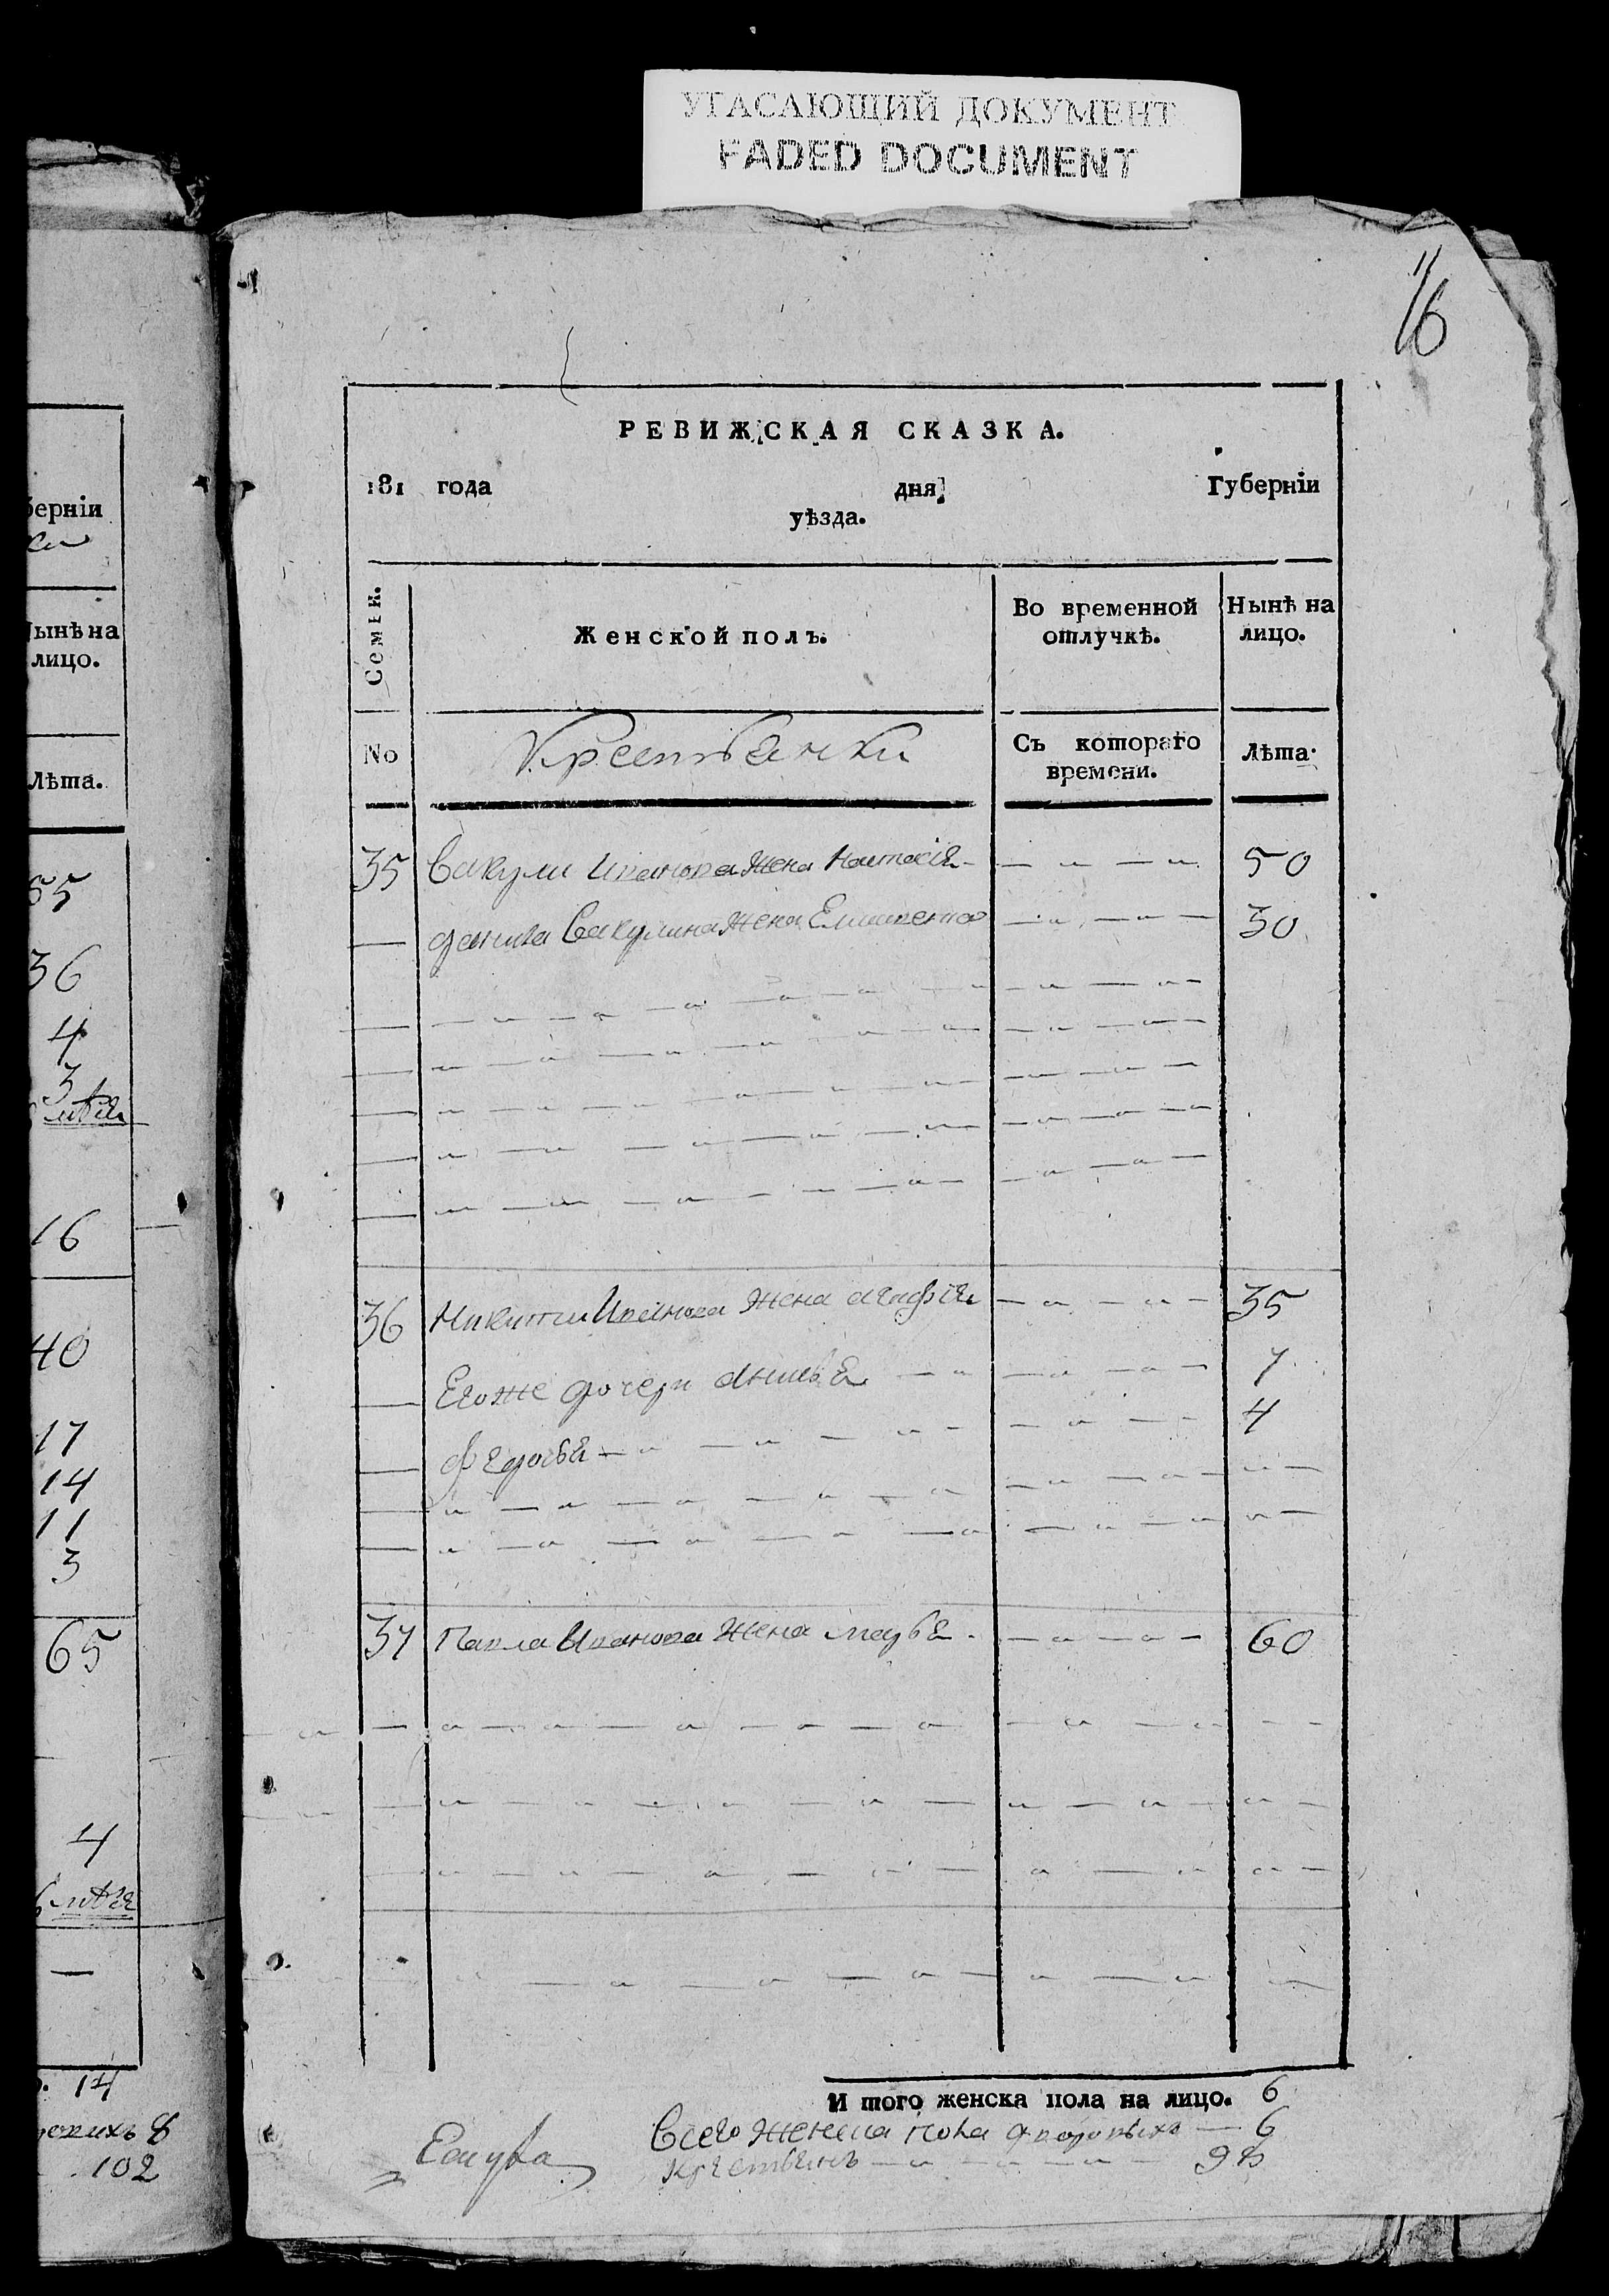 УГАСАЮЩИЙ ДОКУМЕНТ
FADED DOCUMENT
16
РЕВИЖСКАЯ СКАЗКА.
181 года дня Губерніи
уѣзда.
Семьи.
Женской полъ.
Во временной отлучкѣ.
Нынѣ на лицо.
No
Крестьянки
Съ котораго времени.
Лѣта.
35 Вакулы Иванова жена Настасія 50
Вакулина жена 30
36 Никиты Иванова жена агафія 35
Егоже дочери 7
федосья 4
37 Павла Иванова жена 60
И того женска пола на лицо. 6
Всего женска пола дворовыхъ 6
крестьянъ
берніи
Нынѣ на
лицо.
Лѣта.
65
36
4
3
16
40
17
14
11
3
65
4
14
8
102